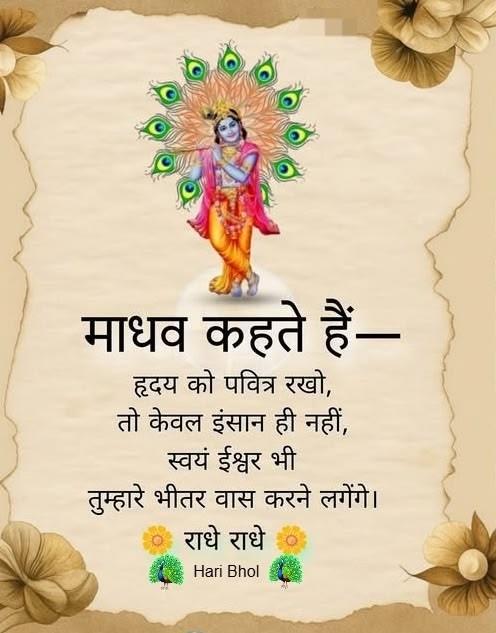 माधव कहते हैं—
हृदय को पवित्र रखो,
तो केवल इंसान ही नहीं,
स्वयं ईश्वर भी
तुम्हारे भीतर वास करने लगेंगे।
राधे राधे
Hari Bhol